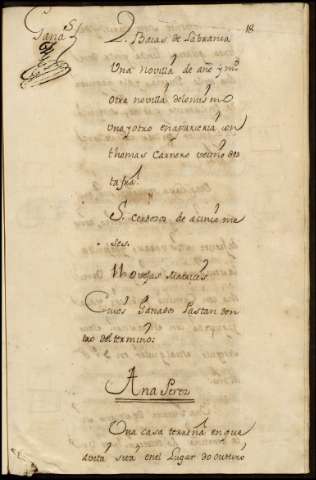 18
Ganªs
2. Bacas de Labranza
Una novilla de año y mº
otra novilla delomismo
una y otro en aparzeria con
thomas Carnero vecino des
ta frª
5. cerdos de a cinco me
ses.
11 ovejas
Cuios Ganados Pastan den
tro del termino:
Ana Perez
Una casa terrena en que
avita sita enel Lugar do outeiro